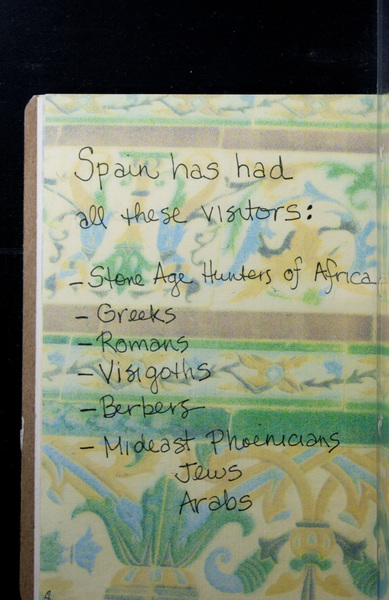 Spain has had
all these visitors:
- Stone Age Hunters of Africa
- Greeks
- Romans
- Visigoths
- Berbers
- Mideast Phoenicians
Jews
Arabs